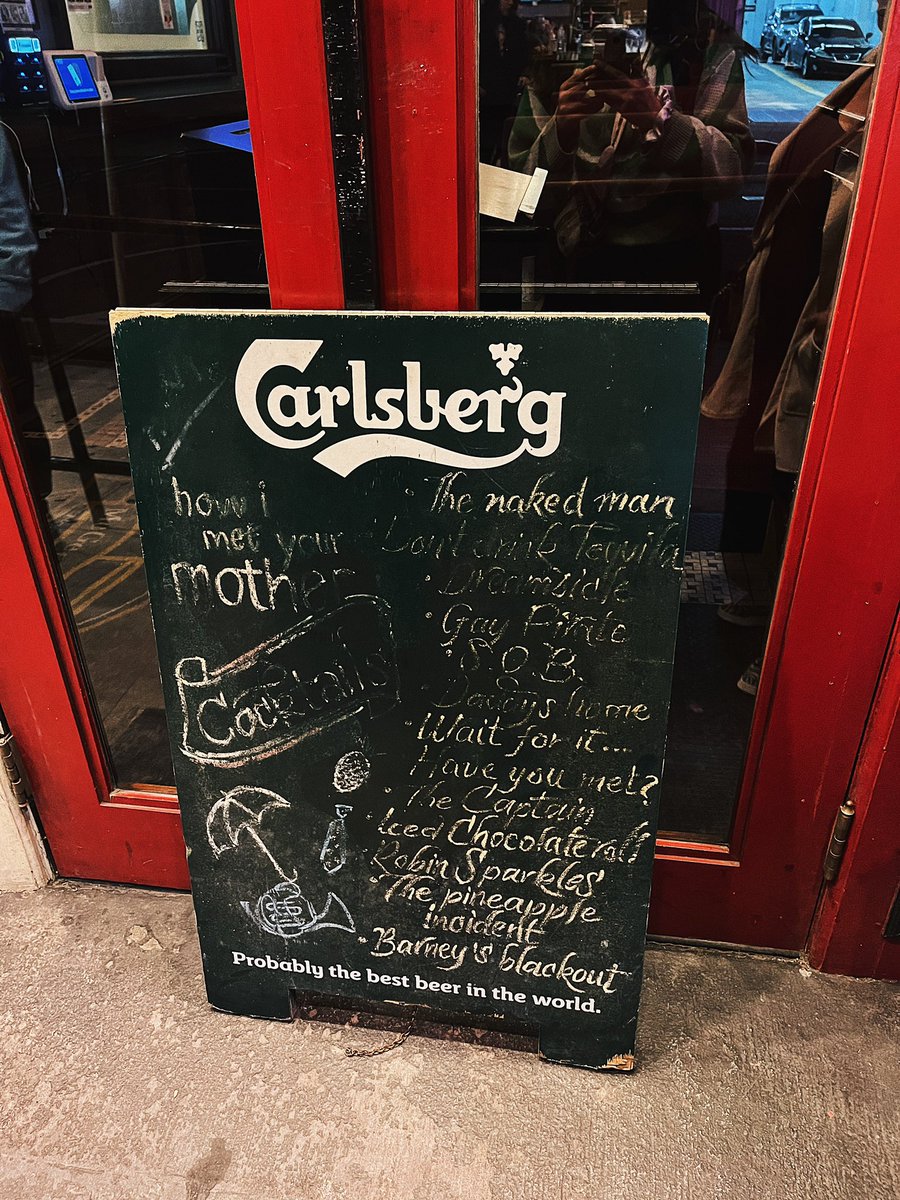 Carlsberg
how i
met your
mother
Cocktails
The naked man
Don't drink Tequila
Dreamsicle
Gay Pirate
S.O.B.
Daddy's home
Wait for it...
Have you met?
The Captain
Iced Chocolate roll
Robin Sparkles
The pineapple
incident
Barney's blackout
Probably the best beer in the world.